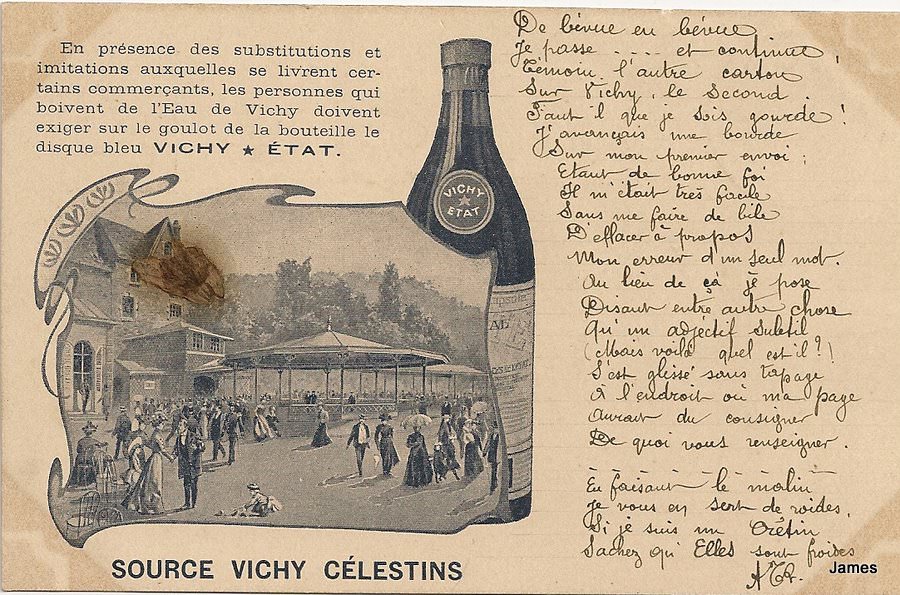 En présence des substitutions et
imitations auxquelles se livrent cer-
tains commerçants, les personnes qui
boivent de l'Eau de Vichy doivent
exiger sur le goulot de la bouteille le
disque bleu VICHY ★ ÉTAT.
VICHY
★
ÉTAT
SOURCE VICHY CÉLESTINS
De bévue en bévue
Je passe .... et continue !
Témoin l'autre carton
Sur Vichy, le second.
Faut il que je sois gourde !
J'avançais une bourde
Sur mon premier envoi ;
Etant de bonne foi
Il m'était très facile
Sans me faire de bile
D'effacer à propos
Mon erreur d'un seul mot.
Au lieu de ça je pose
Disant entre autre chose
Qu'un adjectif subtil
(Mais voilà quel est il ?)
S'est glissé sans tapage
A l'endroit où ma page
Aurait du consigner
De quoi vous renseigner.
En faisant le malin
Je vous en sers de roides,
Si je suis un Crétin
Sachez qu'Elles sont froides
James